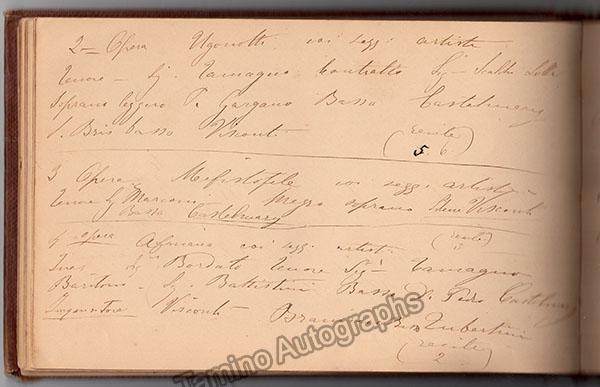 2 Opera Ugonotti coi seggi artisti
Tenore Sig Tamagno Contralto Sig
Soprano leggero Gargano Basso Castelmary
S. Bris basso Visconti
(recite
5 6)
3 Opera Mefistofele coi seggi artisti
Tenore Sig Marconi Mezzo soprano Visconti
Basso Castelmary
4 opera Africana coi seggi artisti (recite
Ines Sig Bordato Tenore Sig Tamagno
Baritono Sig Battistini Basso D. Pedro Castelmary
Inquisitore Visconti
(recite
2)
Tamino Autographs